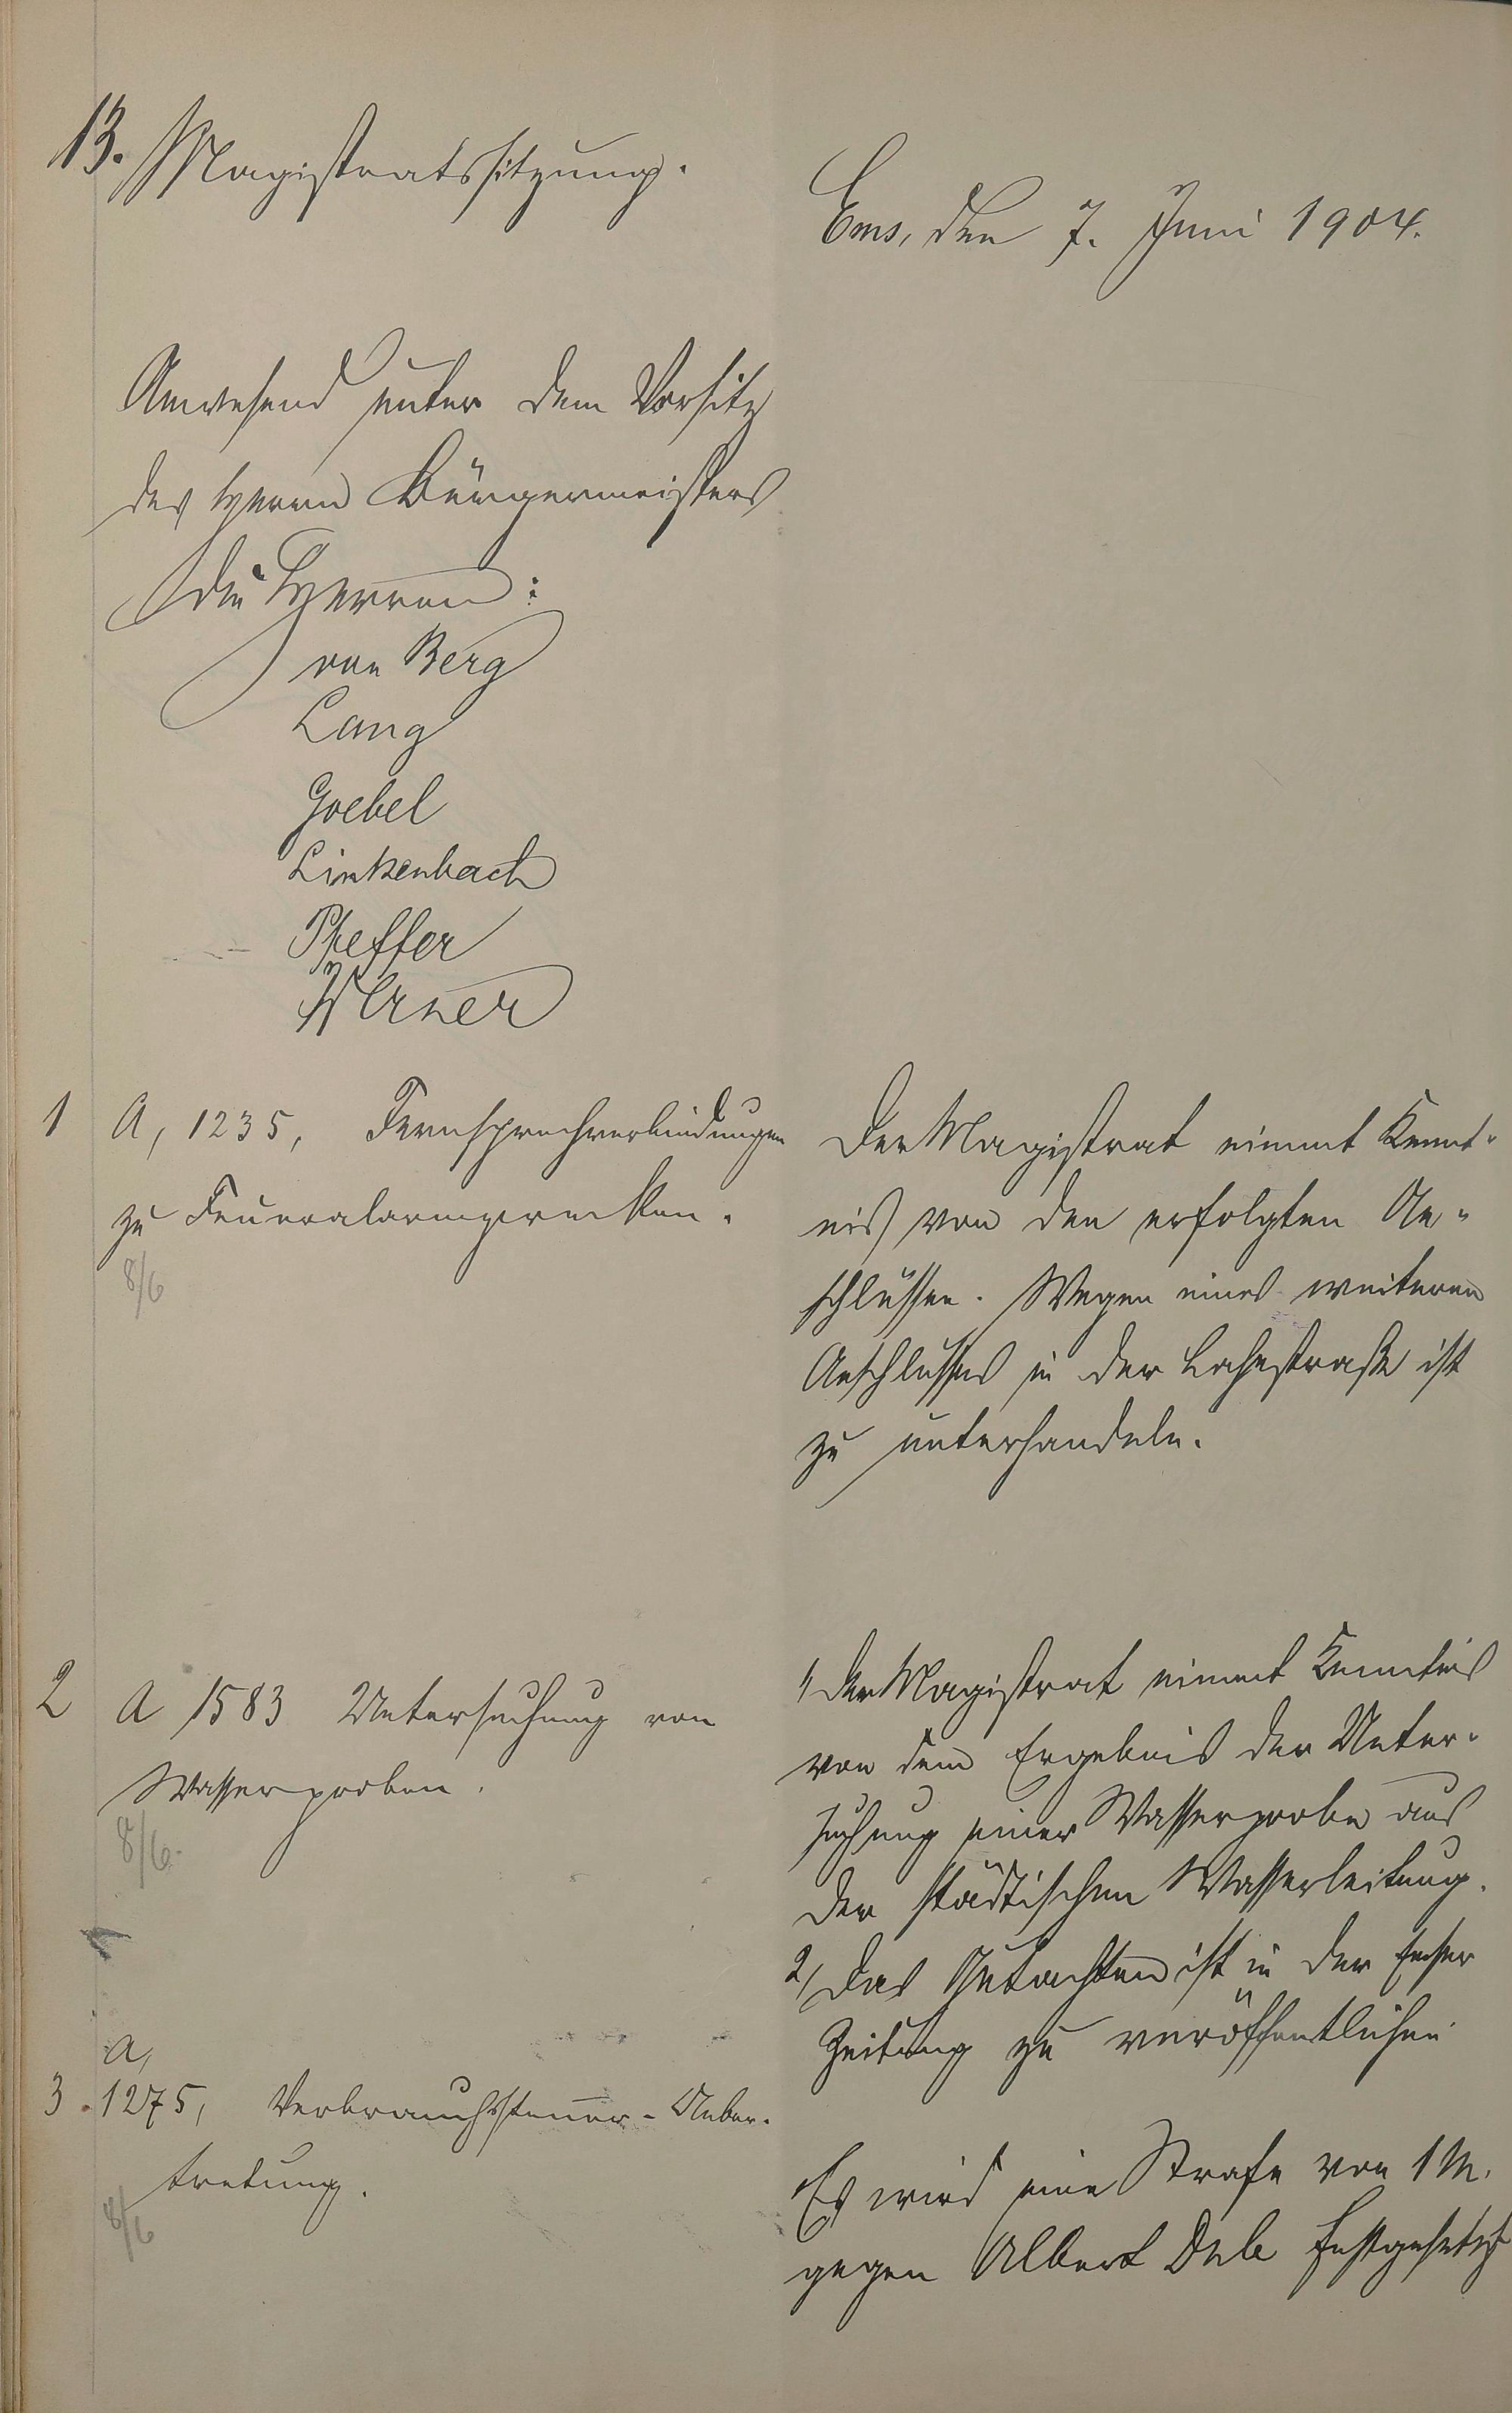 13. Magistratssitzung.
Ems, den 7. Juni 1904.
Anwesend unter dem Vorsitz
des Herrn Bürgermeisters
die Herren:
von Berg
Lang
Goebel
Linkenbach
Pfeffer
Werner
1 A, 1235, Fernsprechverbindungen
zu Feueralarmzwecken.
8/6
Der Magistrat nimmt Kennt-
nis von den erfolgten An-
schlüssen. Wegen eines weiteren
Anschlusses in der Lahnstraße ist
zu unterhandeln.
2 A 1583 Untersuchung von
Wasserproben.
8/6.
1, Der Magistrat nimmt Kenntnis
von dem Ergebnis der Unter-
suchung einer Wasserprobe aus
der städtischen Wasserleitung.
2, Das Gutachten ist in der Emser
Zeitung zu veröffentlichen
A,
3. 1275, Verbrauchssteuer-Ueber-
tretung.
8/6
Es wird eine Strafe von 1 M.
gegen Albert festgesetzt